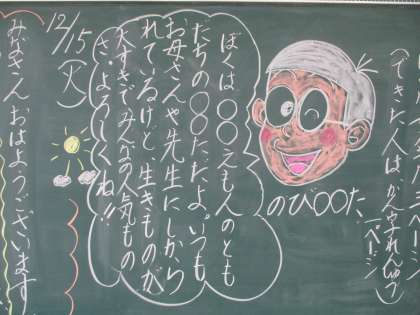 (できた人はかん字れんしゅう
一ページ)
のび〇〇た
ぼくは〇〇えもんのとも
だちの〇〇ただよ。いつも
お母さんや先生にしから
れているけど、生きものが
大すきでみんなの人気もの
さ。よろしくね!!
12/15(火)
みなさん、おはようございます